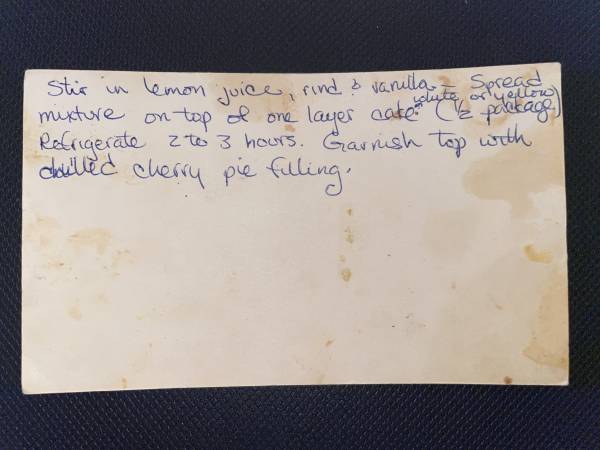 Stir in lemon juice, rind & vanilla. Spread
mixture on top of one layer cake. white or yellow (1/2 package)
Refrigerate 2 to 3 hours. Garnish top with
chilled cherry pie filling.